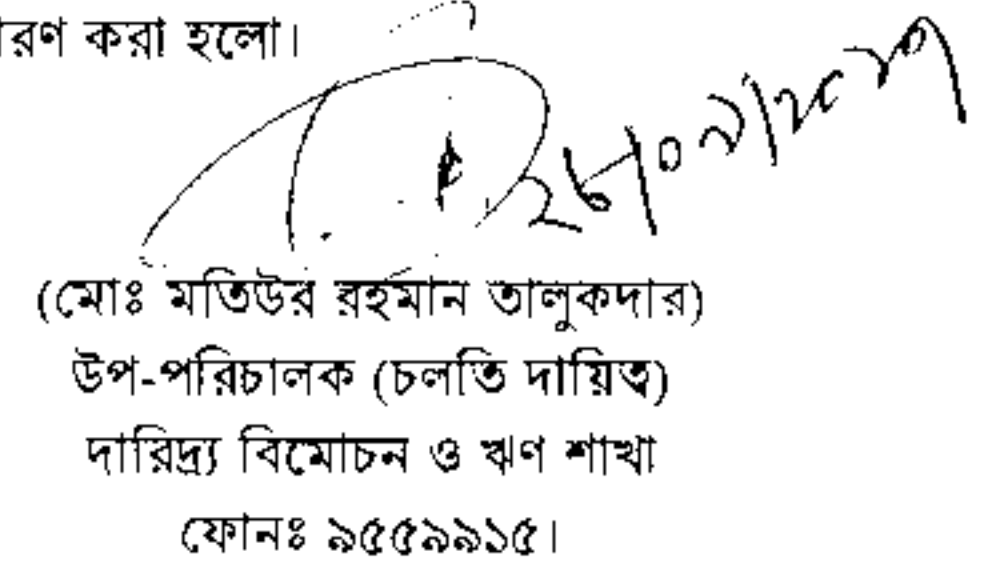 রণ করা হলো।
(মোঃ মতিউর রহমান তালুকদার)
উপ-পরিচালক (চলতি দায়িত্ব)
দারিদ্র্য বিমোচন ও ঋণ শাখা
ফোনঃ ৯৫৫৯৯১৫।